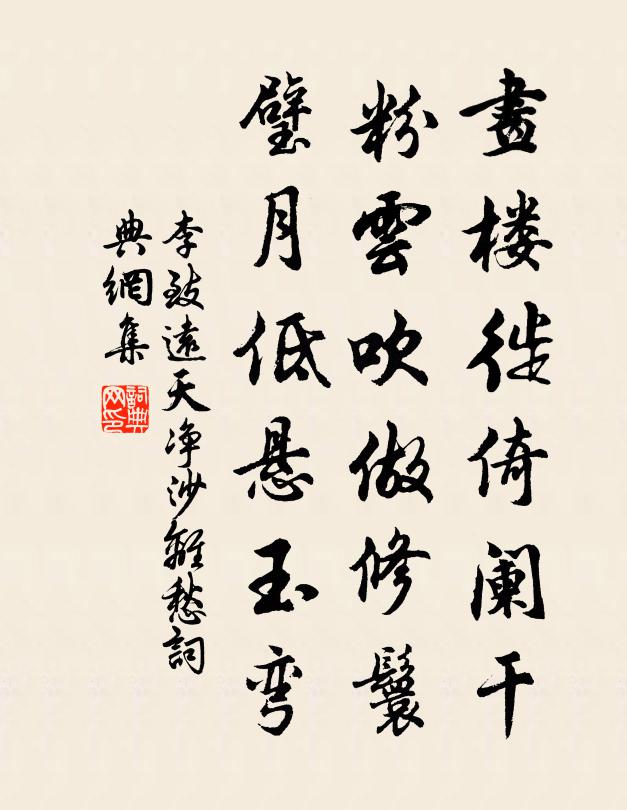 畫楼徙倚阑干
粉雲吹做修鬟
璧月低悬玉弯
李致遠天净沙離愁詞
典網集
詞典网印